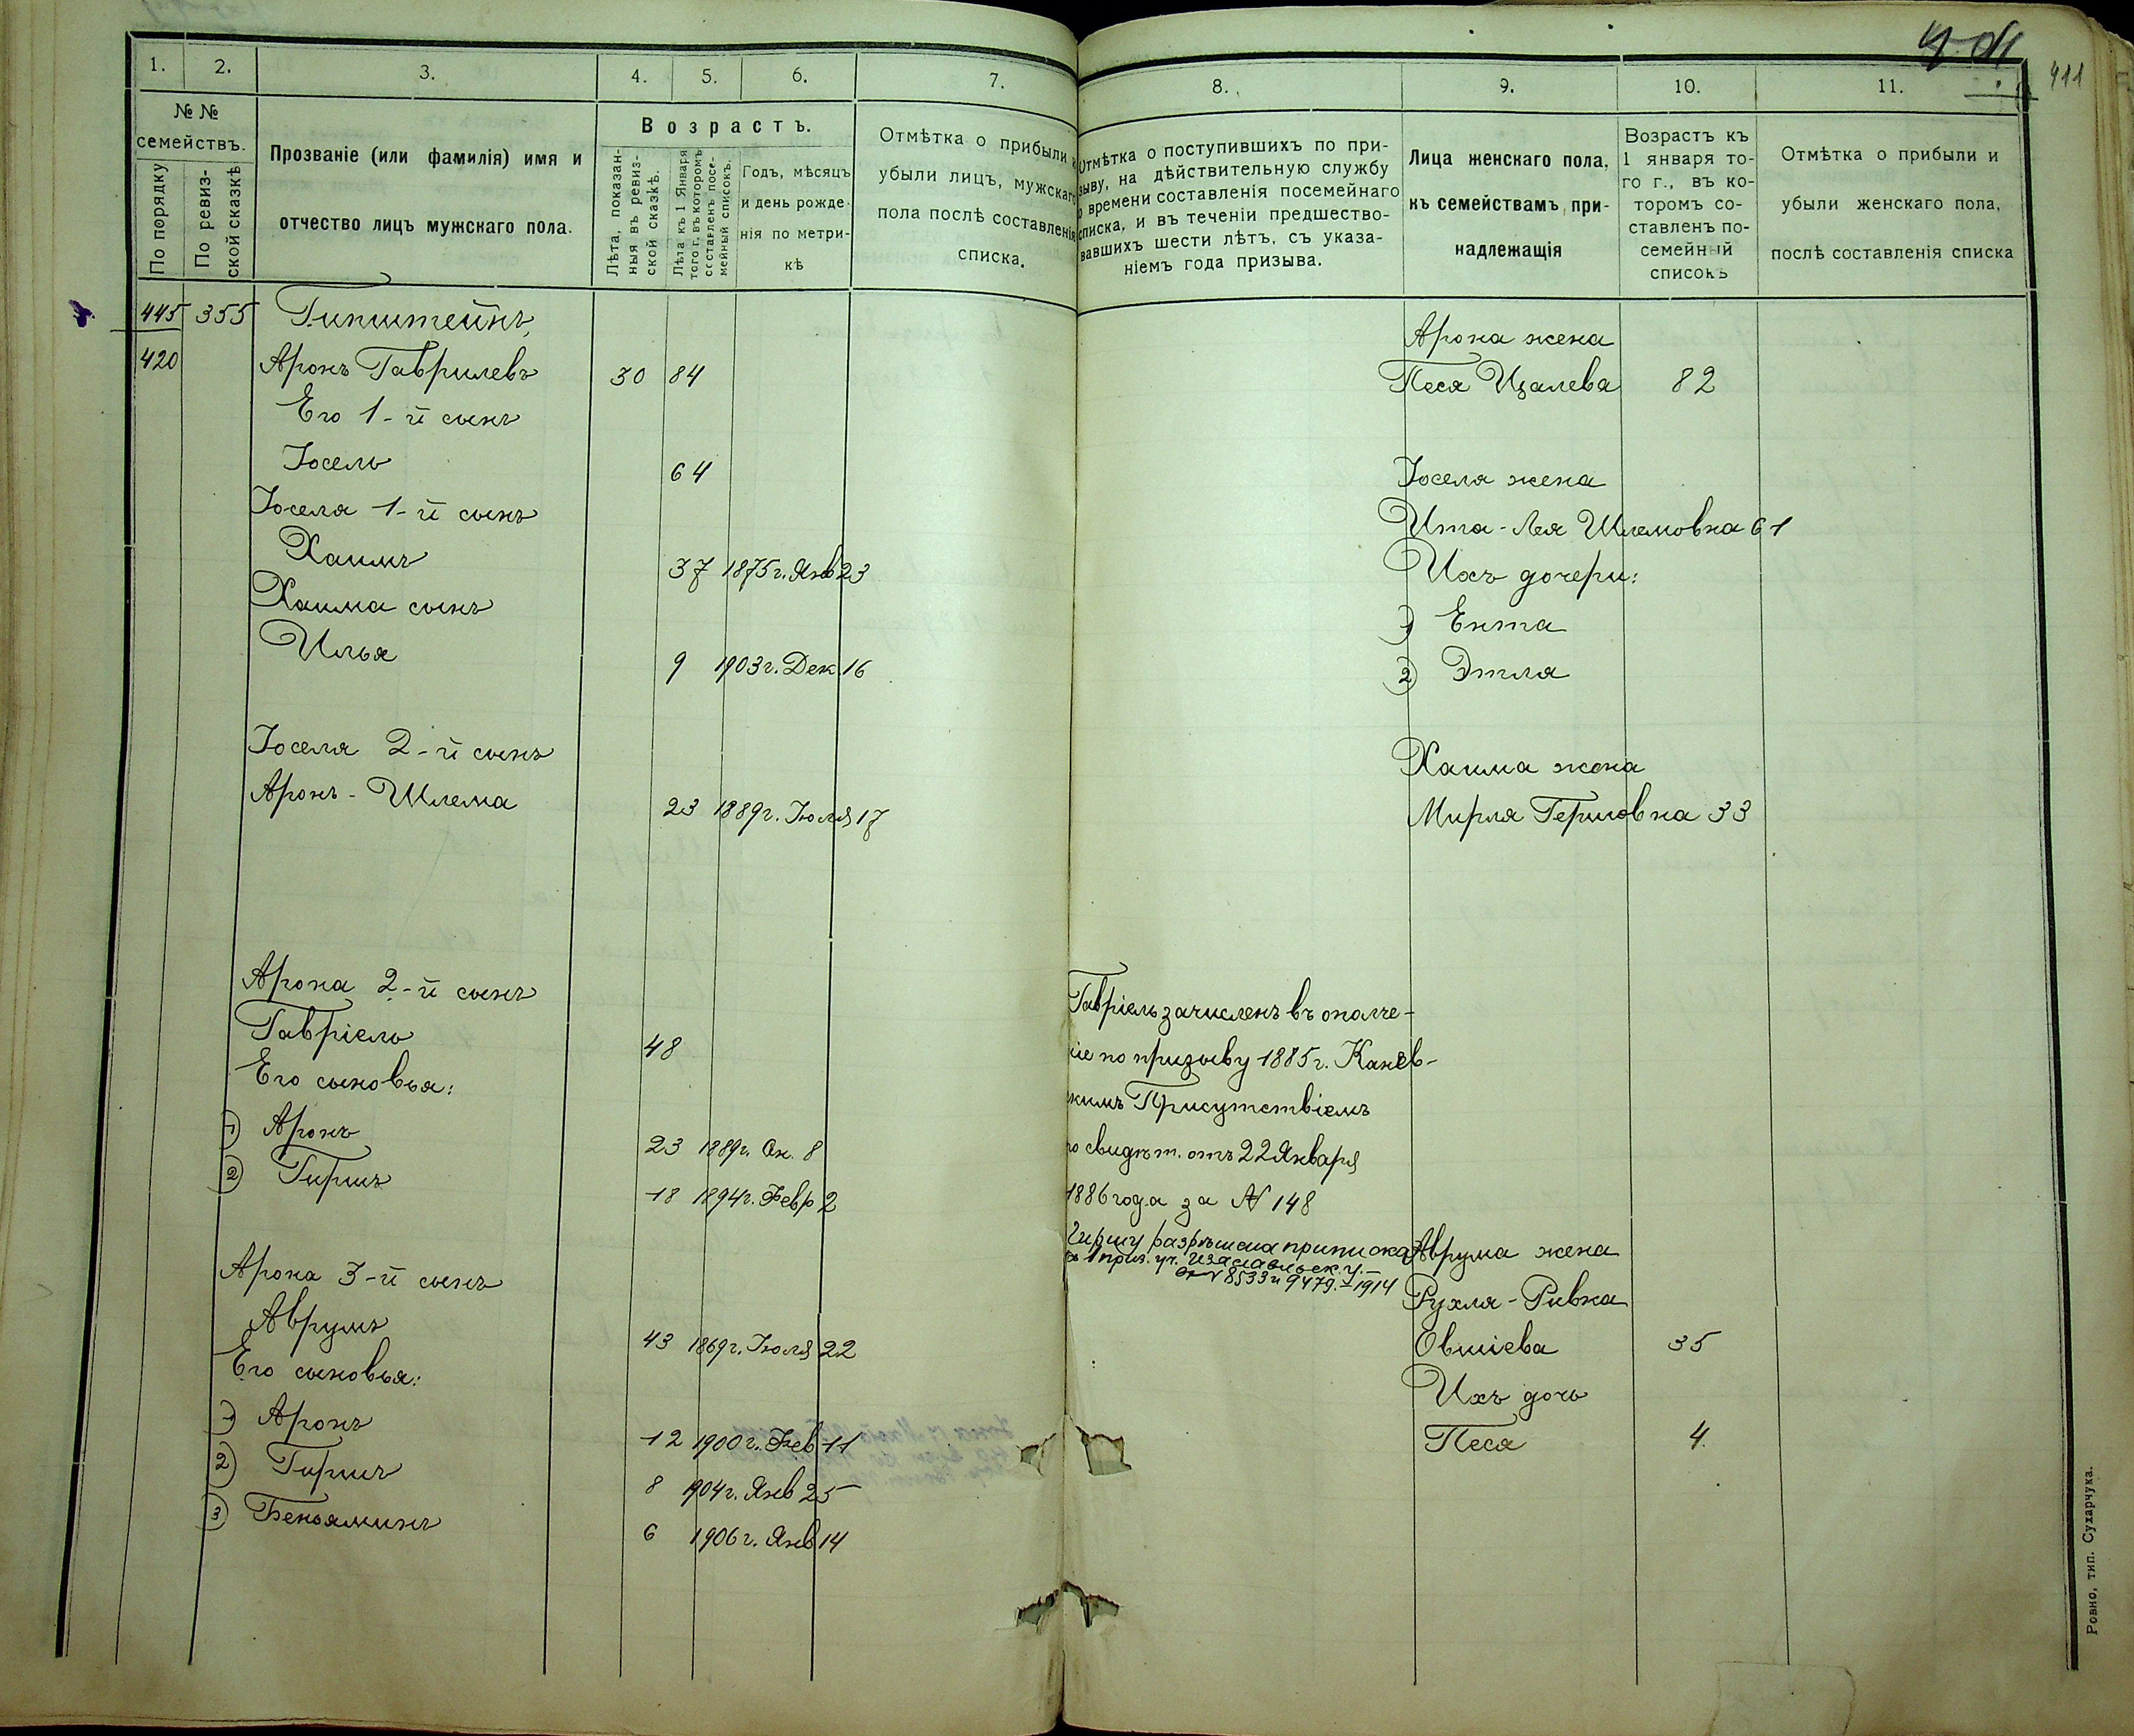 411
1.
2.
3.
4.
5.
6.
7.
8.
9.
10.
11.
№ №
семействъ.
По порядку
По ревиз-
ской сказкѣ
Прозваніе (или фамилія) имя и
отчество лицъ мужскаго пола.
Возрастъ.
Лѣта, показан-
ныя въ ревиз-
ской сказкѣ.
Лѣта къ 1 Января
того г., въ которомъ
составленъ посе-
мейный списокъ.
Годъ, мѣсяцъ
и день рожде-
нія по метри-
кѣ
Отмѣтка о прибыли и
убыли лицъ, мужскаго
пола послѣ составленія
списка.
Отмѣтка о поступившихъ по при-
зыву, на дѣйствительную службу
о времени составленія посемейнаго
списка, и въ теченіи предшество-
вавшихъ шести лѣтъ, съ указа-
ніемъ года призыва.
Лица женскаго пола,
къ семействамъ при-
надлежащія
Возрастъ къ
1 января то-
го г., въ ко-
торомъ со-
ставленъ по-
семейный
списокъ
Отмѣтка о прибыли и
убыли женскаго пола,
послѣ составленія списка
445 355 Гипштейнъ
420 Аронъ Гаврилевъ 30 84
Его 1-й сынъ
Іосель 64
Іоселя 1-й сынъ
Хаимъ 37 1875 г. Янв 23
Хаима сынъ
Илья 9 1903 г. Дек. 16
Іоселя 2-й сынъ
Аронъ-Шлема 23 1889 г. Іюля 17
Арона 2-й сынъ
Гавріель 48
Его сыновья:
1) Аронъ 23 1889 г. Ок. 8
2) Гиршъ 18 1894 г. Февр 2
Арона 3-й сынъ
Аврумъ 43 1869 г. Іюля 22
Его сыновья:
1) Аронъ 12 1900 г. Фев 11
2) Гиршъ 8 1904 г. Янв 25
3) Беньяминъ 6 1906 г. Янв 14
Гавріель зачисленъ въ ополче-
іе по призыву 1885 г. Канев-
кимъ Присутствіемъ
о свидѣт. отъ 22 Января
1886 года за № 148
Гиршу разрѣшена приписка
1 приз. уч. Изаславльск. у.
8533 и 9479. - 1914
Арона жена
Песя Ицалева 82
Іоселя жена
Ита-Лея Шлемовна 61
Ихъ дочери:
1) Ента
2) Этля
Хаима жена
Мирля Гершовна 33
Аврума жена
Рухля-Ривка
Овшіева 35
Ихъ дочь
Песя 4.
Ровно, тип. Сухарчука.